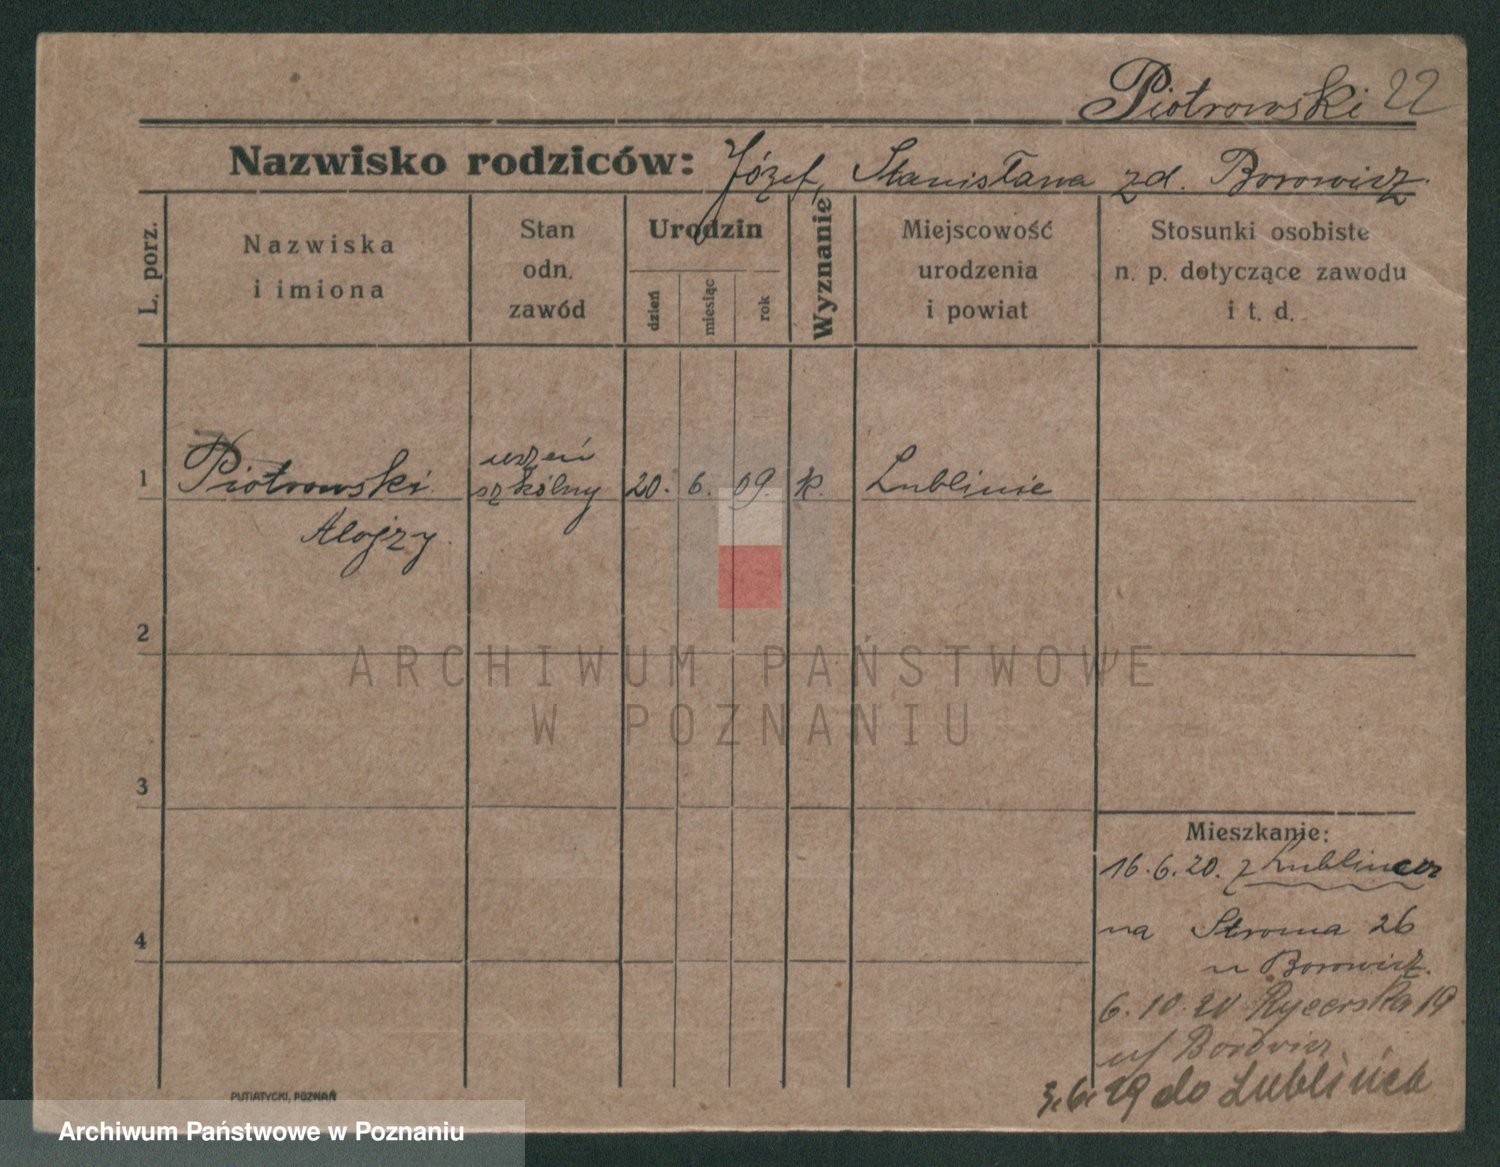 Piotrowski 22
Nazwisko rodziców: Józef, Stanisława zd. Borowicz.
L. porz.
Nazwiska
i imiona
Stan
odn.
zawód
Urodzin
dzień
miesiąc
rok
Wyznanie
Miejscowość
urodzenia
i powiat
Stosunki osobiste
n. p. dotyczące zawodu
i t. d.
1 Piotrowski
Alojzy.
uczeń
szkólny
20. 6. 09. k. Lublinie
2
ARCHIWUM PAŃSTWOWE
W POZNANIU
3
4
Mieszkanie:
16.6.20. z
na Stroma 26
u Borowicz.
6.10.20 Rycerska 19
Borowicz
3.6.29 do Lublińca
PUTIATYCKI, POZNAŃ
Archiwum Państwowe w Poznaniu